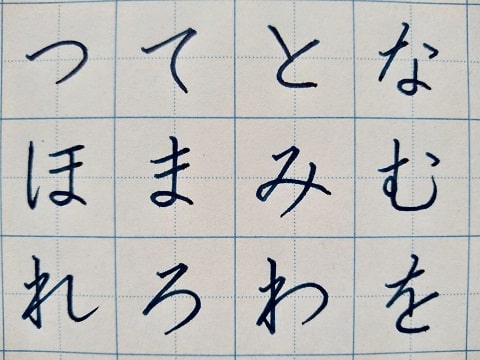 つてとな
ほまみむ
れろわを